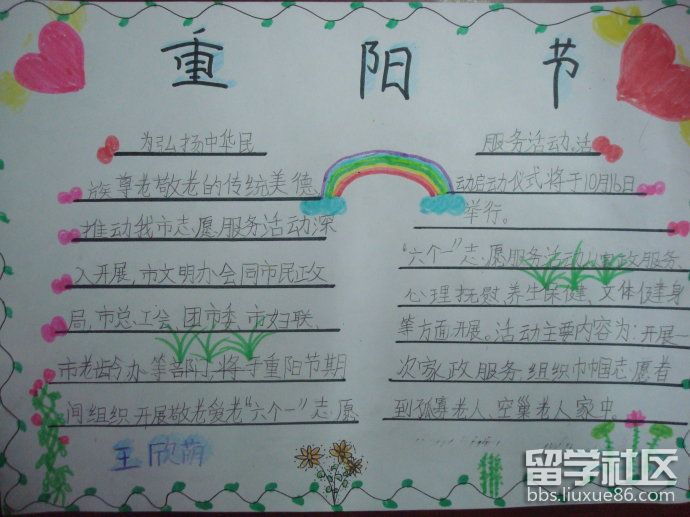 重阳节
为弘扬中华民
族尊老敬老的传统美德、
推动我市志愿服务活动深
入开展,市文明办会同市民政
局、市总工会、团市委、市妇联、
市老龄办等部门,将于重阳节期
间组织开展敬老爱老“六个一”志愿
服务活动,活
动启动仪式将于10月16日
举行。
“六个一”志愿服务活动从家政服务、
心理抚慰、养生保健、文体健身
等方面开展。活动主要内容为:开展一
次家政服务,组织巾帼志愿者
到孤寡老人、空巢老人家中。
王欣荫
留学社区
bbs.liuxue86.com